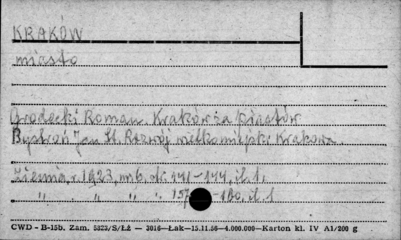 KRAKÓW
miasto
Grodecki Roman. Kraków za Piastów
Bystroń Jan St. Rozwój wielkomiejski Krakowa.
Ziemia, r. 1923, nr 6, str. 141-144, il. 1.
" " " " 157 -160, il. 1
CWD - B-15b. Zam. 5323/S/Łż — 3016—Łak—15.11.56—4.000.000—Karton kl. IV A1/200 g